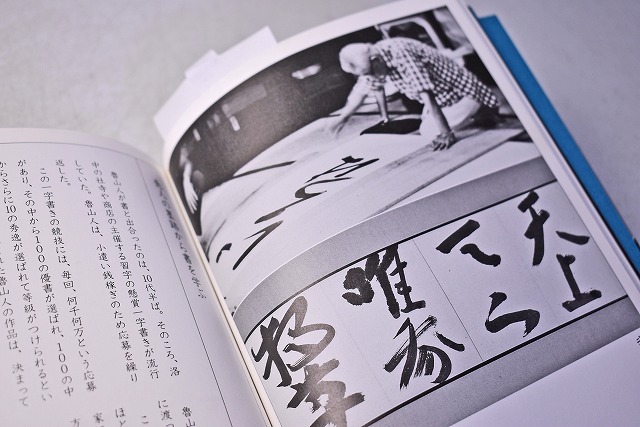 を学ぶ
魯山人が書と出合ったのは、10代半ば。そのころ、洛
中の社寺や商店の主催する習字の懸賞一字書きが流行
していた。魯山人は、小遣い銭稼ぎのため応募を繰り
返した。
この一字書きの競技には、毎回、何千何万という応募
があり、その中から100の優書が選ばれ、100の中
からさらに10の秀逸が選ばれて等級がつけられるとい
た魯山人の作品は、決まって
魯山
に渡っ
こ
ほど
家
方
天上
唯